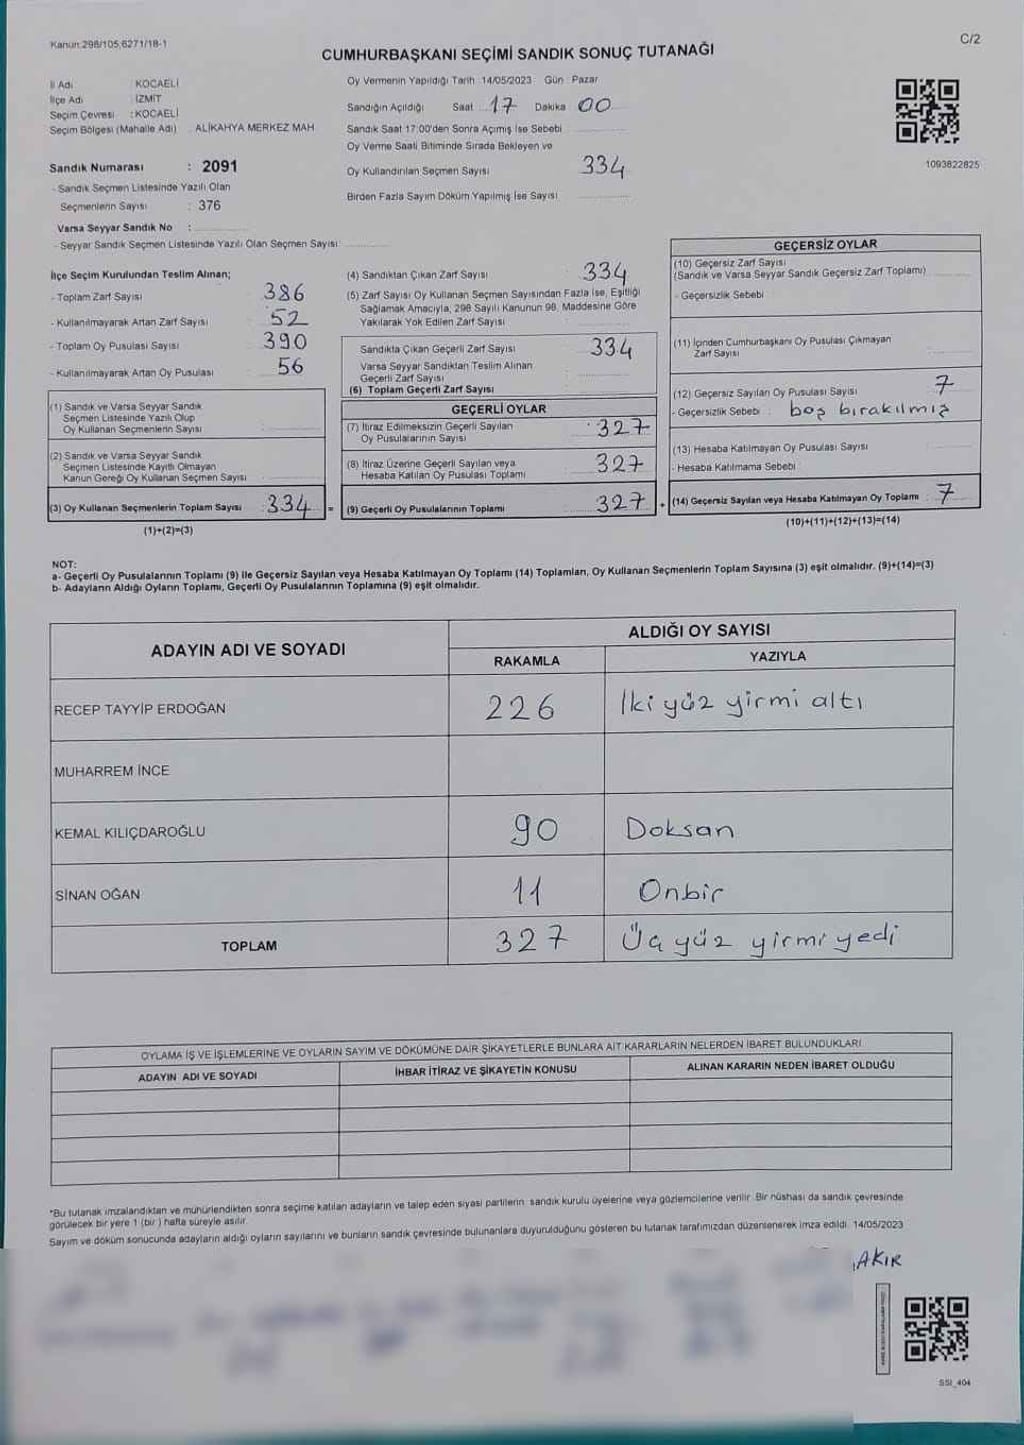 Kanun:298/105,6271/18-1
C/2
CUMHURBAŞKANI SEÇİMİ SANDIK SONUÇ TUTANAĞI
İl Adı : KOCAELİ
İlçe Adı : İZMİT
Seçim Çevresi : KOCAELİ
Seçim Bölgesi (Mahalle Adı) : ALİKAHYA MERKEZ MAH
Sandık Numarası : 2091
- Sandık Seçmen Listesinde Yazılı Olan
Seçmenlerin Sayısı : 376
Varsa Seyyar Sandık No :
- Seyyar Sandık Seçmen Listesinde Yazılı Olan Seçmen Sayısı:
Oy Vermenin Yapıldığı Tarih :14/05/2023 Gün : Pazar
Sandığın Açıldığı Saat 17 Dakika 00
Sandık Saat 17:00'den Sonra Açılmış İse Sebebi
Oy Verme Saati Bitiminde Sırada Bekleyen ve
Oy Kullandırılan Seçmen Sayısı 334
Birden Fazla Sayım Döküm Yapılmış İse Sayısı
1093822825
İlçe Seçim Kurulundan Teslim Alınan;
- Toplam Zarf Sayısı 386
- Kullanılmayarak Artan Zarf Sayısı 52
- Toplam Oy Pusulası Sayısı 390
- Kullanılmayarak Artan Oy Pusulası 56
(1) Sandık ve Varsa Seyyar Sandık
Seçmen Listesinde Yazılı Olup
Oy Kullanan Seçmenlerin Sayısı
(2) Sandık ve Varsa Seyyar Sandık
Seçmen Listesinde Kayıtlı Olmayan
Kanun Gereği Oy Kullanan Seçmen Sayısı
(3) Oy Kullanan Seçmenlerin Toplam Sayısı : 334 =
(1)+(2)=(3)
(4) Sandıktan Çıkan Zarf Sayısı 334
(5) Zarf Sayısı Oy Kullanan Seçmen Sayısından Fazla İse, Eşitliği
Sağlamak Amacıyla, 298 Sayılı Kanunun 98. Maddesine Göre
Yakılarak Yok Edilen Zarf Sayısı
Sandıkta Çıkan Geçerli Zarf Sayısı 334
Varsa Seyyar Sandıktan Teslim Alınan
Geçerli Zarf Sayısı
(6) Toplam Geçerli Zarf Sayısı
GEÇERLİ OYLAR
(7) İtiraz Edilmeksizin Geçerli Sayılan
Oy Pusulalarının Sayısı 327
(8) İtiraz Üzerine Geçerli Sayılan veya
Hesaba Katılan Oy Pusulası Toplamı 327
(9) Geçerli Oy Pusulalarının Toplamı 327 +
GEÇERSİZ OYLAR
(10) Geçersiz Zarf Sayısı
(Sandık ve Varsa Seyyar Sandık Geçersiz Zarf Toplamı)
- Geçersizlik Sebebi
(11) İçinden Cumhurbaşkanı Oy Pusulası Çıkmayan
Zarf Sayısı
(12) Geçersiz Sayılan Oy Pusulası Sayısı 7
- Geçersizlik Sebebi : boş bırakılmış
(13) Hesaba Katılmayan Oy Pusulası Sayısı
- Hesaba Katılmama Sebebi
(14) Geçersiz Sayılan veya Hesaba Katılmayan Oy Toplamı : 7
(10)+(11)+(12)+(13)=(14)
NOT:
a- Geçerli Oy Pusulalarının Toplamı (9) ile Geçersiz Sayılan veya Hesaba Katılmayan Oy Toplamı (14) Toplamları, Oy Kullanan Seçmenlerin Toplam Sayısına (3) eşit olmalıdır. (9)+(14)=(3)
b- Adayların Aldığı Oyların Toplamı, Geçerli Oy Pusulalarının Toplamına (9) eşit olmalıdır.
ADAYIN ADI VE SOYADI
ALDIĞI OY SAYISI
RAKAMLA YAZIYLA
RECEP TAYYİP ERDOĞAN 226 İki yüz yirmi altı
MUHARREM İNCE
KEMAL KILIÇDAROĞLU 90 Doksan
SİNAN OĞAN 11 Onbir
TOPLAM 327 Üç yüz yirmi yedi
OYLAMA İŞ VE İŞLEMLERİNE VE OYLARIN SAYIM VE DÖKÜMÜNE DAİR ŞİKAYETLERLE BUNLARA AİT KARARLARIN NELERDEN İBARET BULUNDUKLARI
ADAYIN ADI VE SOYADI İHBAR İTİRAZ VE ŞİKAYETİN KONUSU ALINAN KARARIN NEDEN İBARET OLDUĞU
*Bu tutanak imzalandıktan ve mühürlendikten sonra seçime katılan adayların ve talep eden siyasi partilerin sandık kurulu üyelerine veya gözlemcilerine verilir. Bir nüshası da sandık çevresinde
görülecek bir yere 1 (bir ) hafta süreyle asılır.
Sayım ve döküm sonucunda adayların aldığı oyların sayılarını ve bunların sandık çevresinde bulunanlara duyurulduğunu gösteren bu tutanak tarafımızdan düzenlenerek imza edildi. 14/05/2023
AKIR
SSI_404